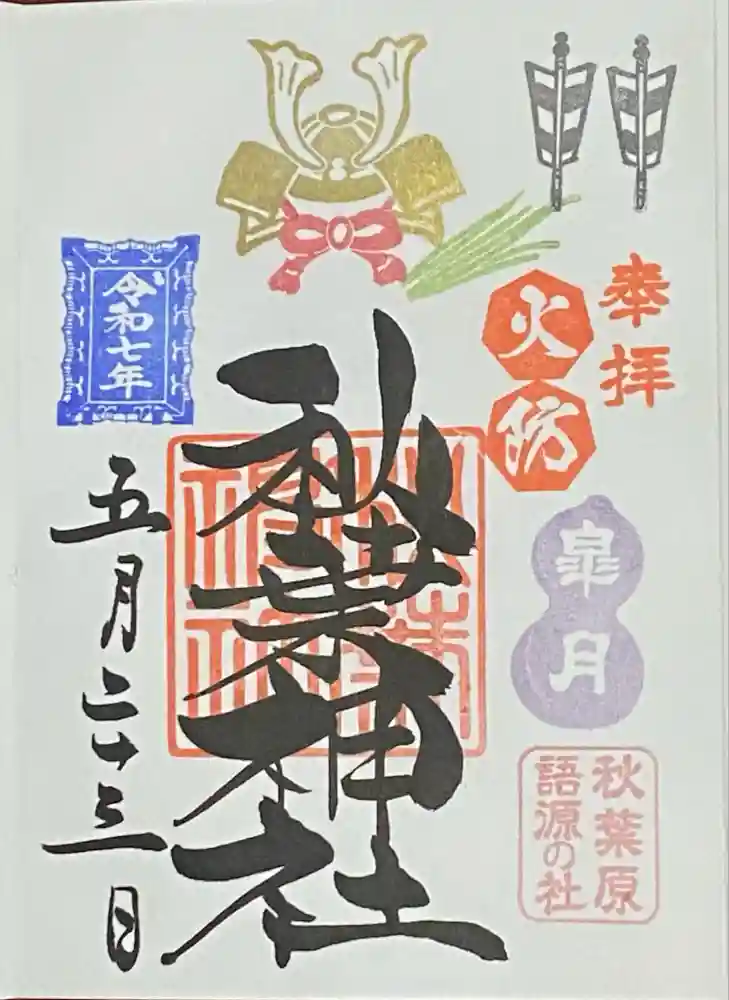 奉拝
火防
皐月
秋葉原
語源の社
秋葉神社
令和七年
五月二十三日